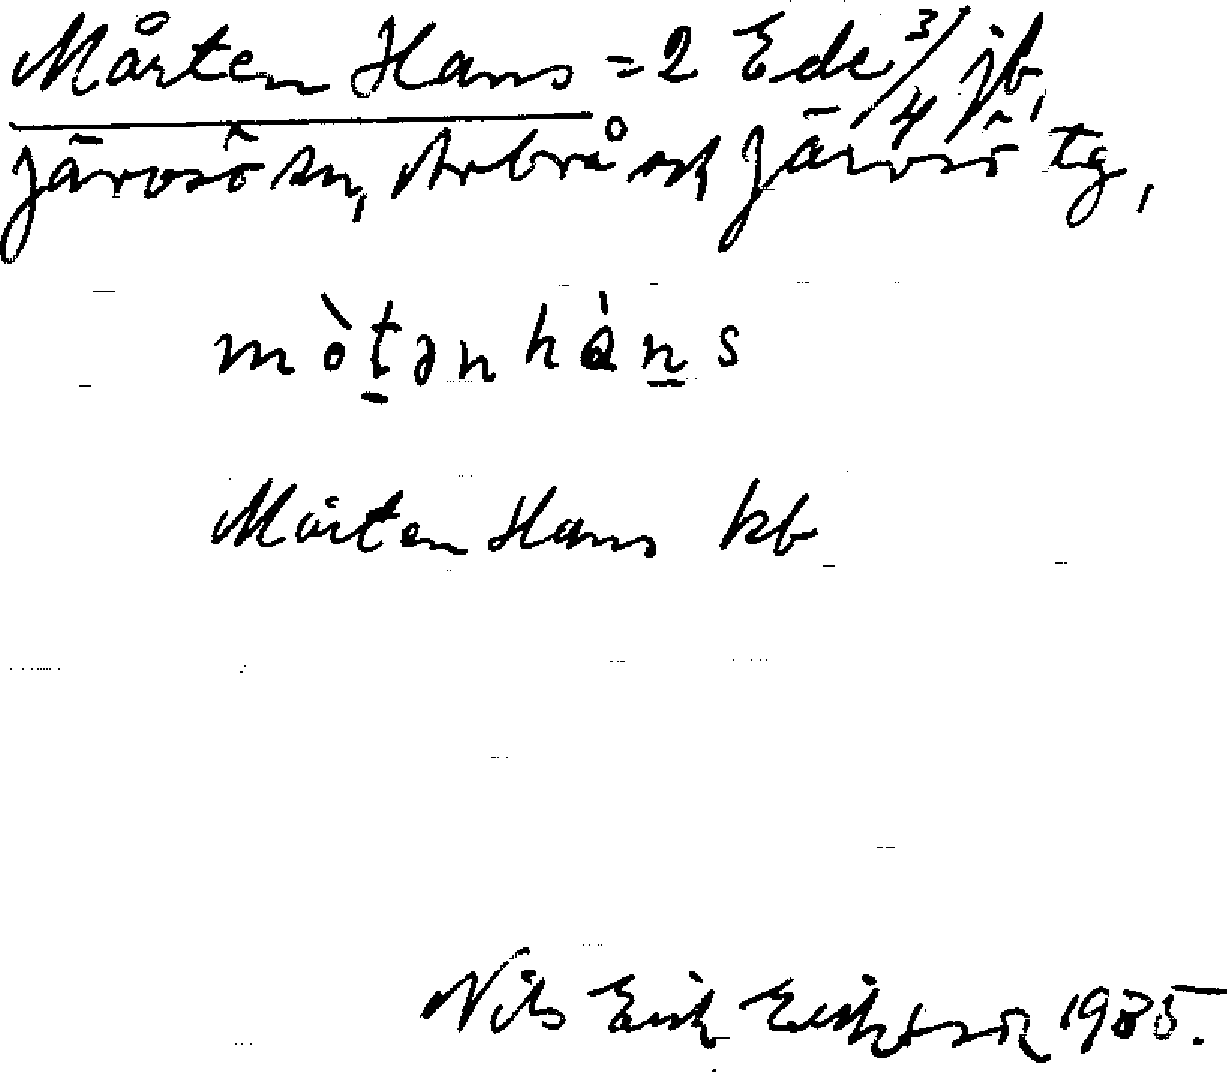 Mårten Hans = 2 Ede 3/4 jb,
Järvsö sn, Arbrå och Järvsö tg,
mòt̲ənhàn̲s
Mårten Hans kb
Nils Erik Eriksson 1985.